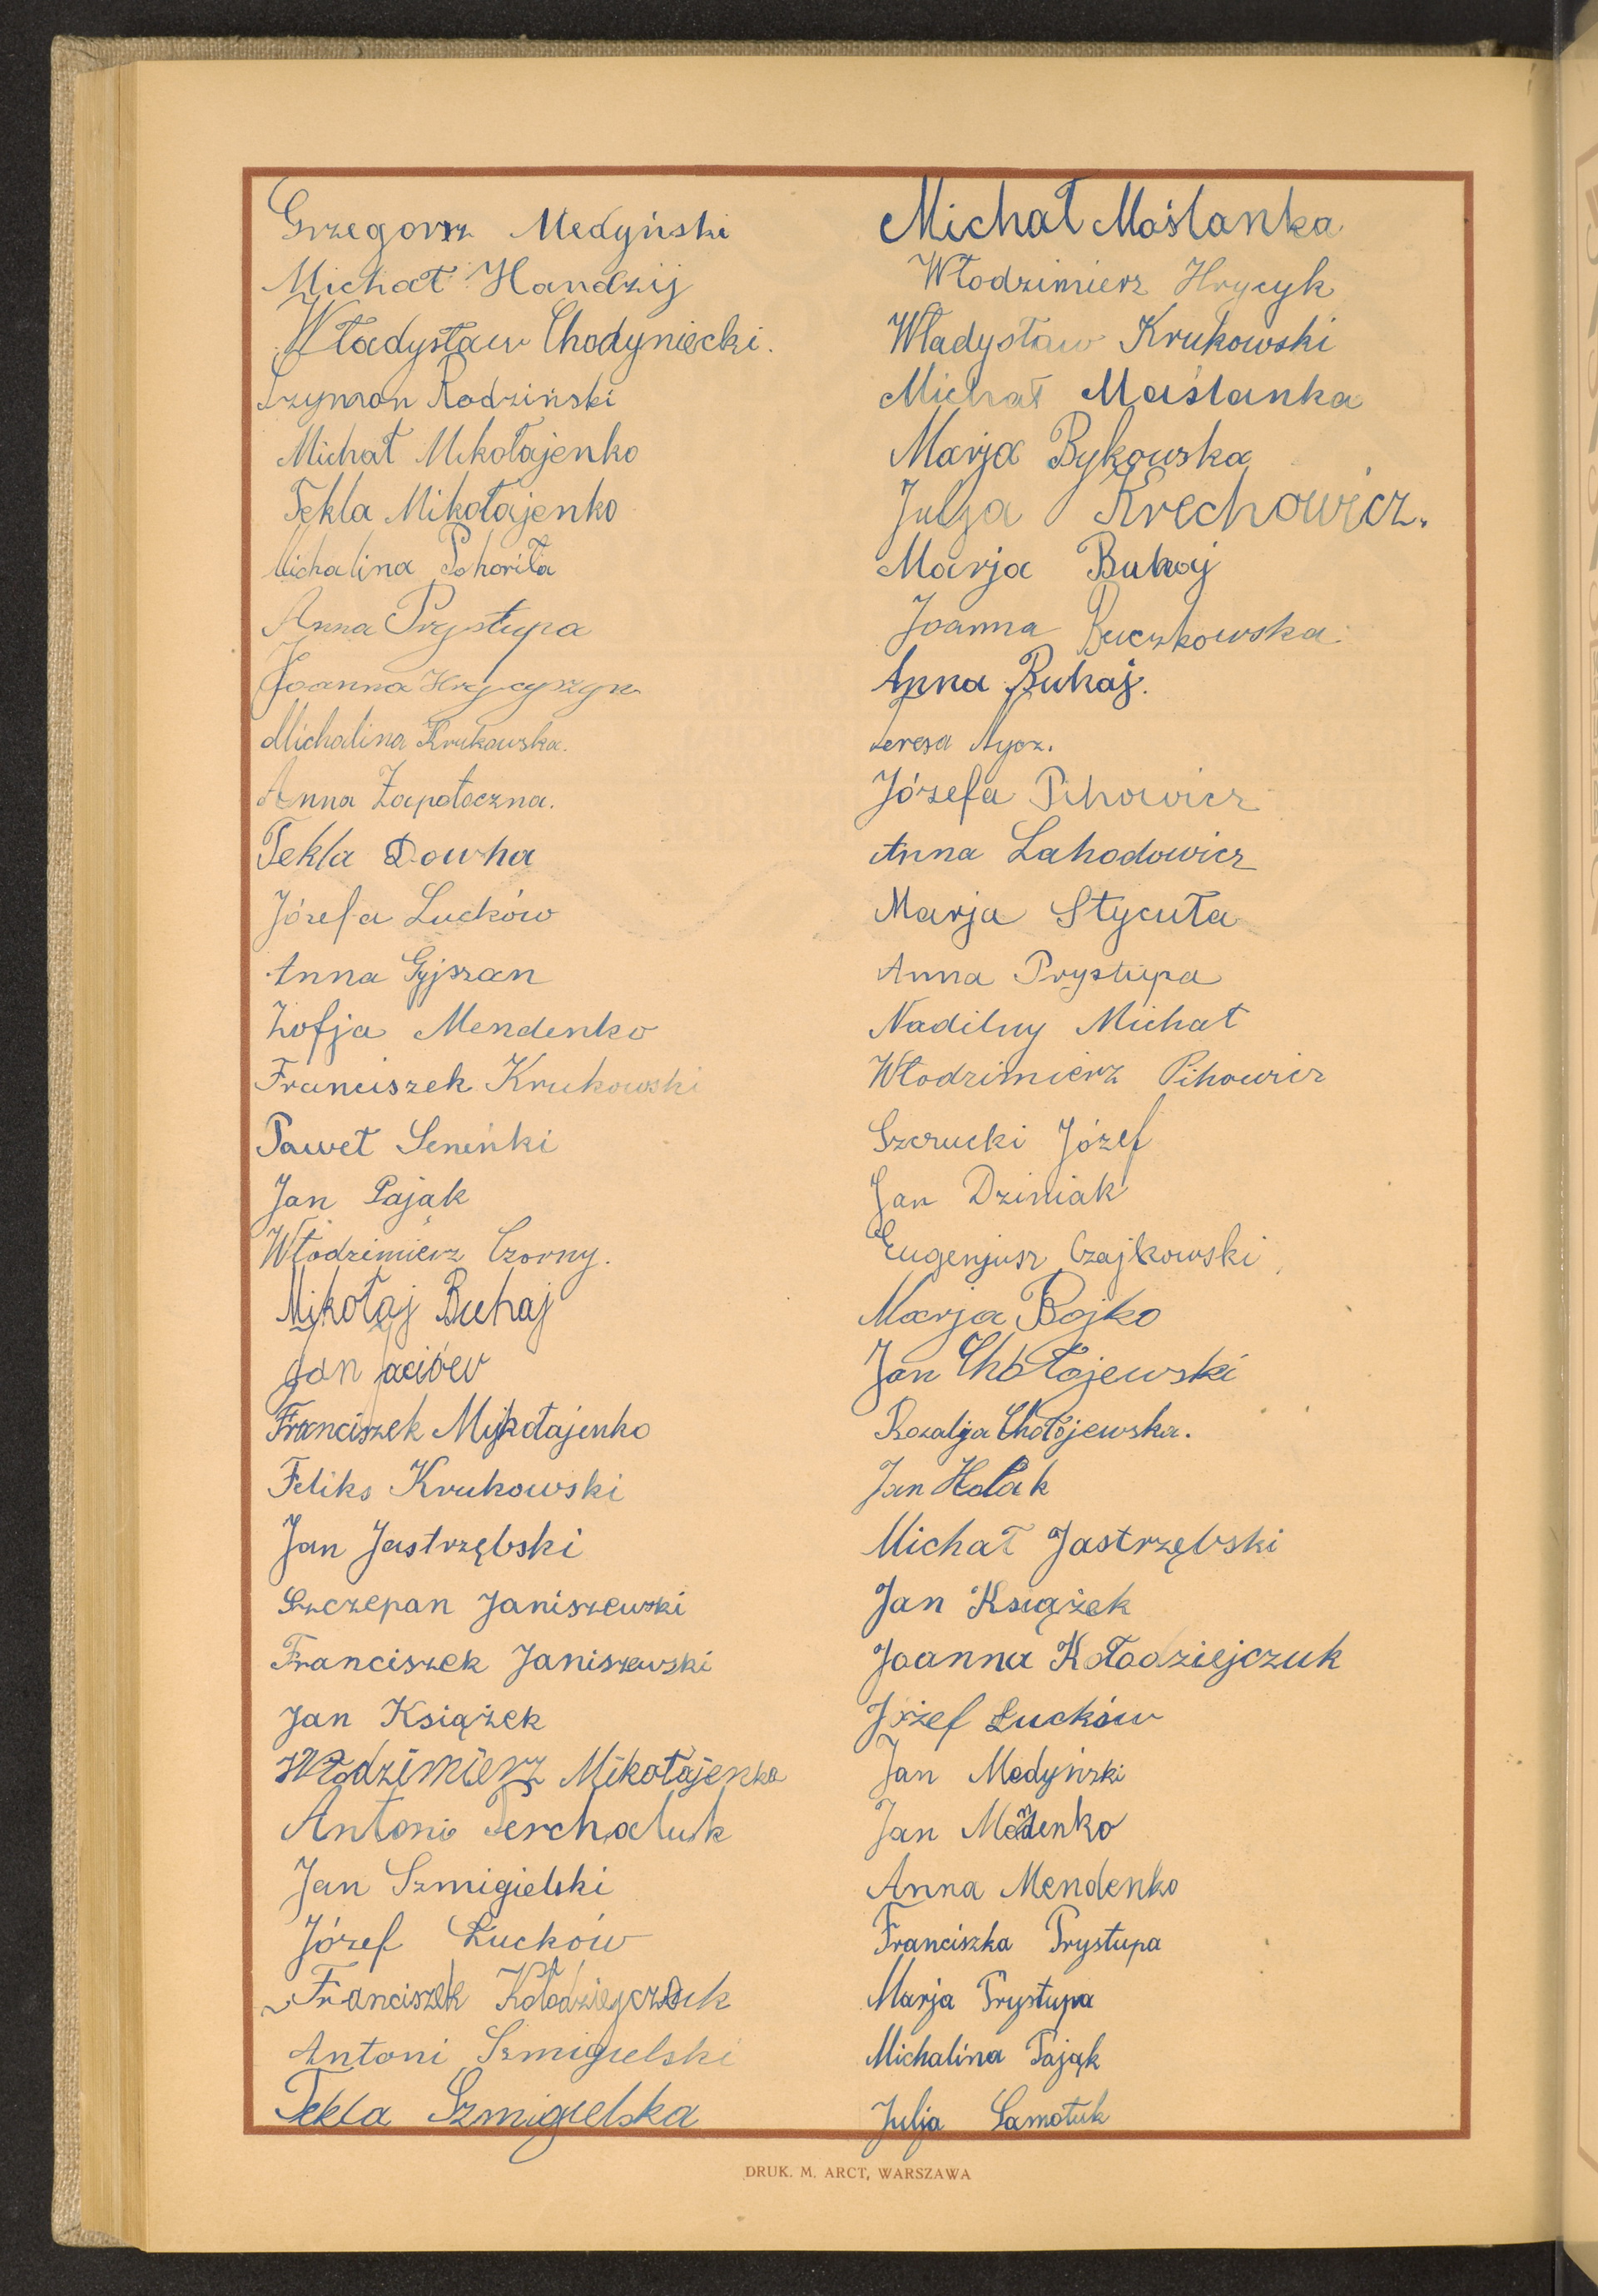 Grzegorz Medyński
Michał Handzij
Władysław Chodyniecki.
Szymon Rodziński
Michał Mikołajenko
Tekla Mikołajenko
Michalina Pohoriła
Anna Prystupa
Joanna Hrycyszyn
Michalina Krukowska.
Anna Zapotoczna.
Tekla Dowha
Józefa Lucków
Anna Gyjszan
Zofja Mendenko
Franciszek Krukowski
Paweł Seneńki
Jan Pająk
Włodzimierz Czorny.
Mikołaj Buhaj
Jan Jaciów
Franciszek Mykołajenko
Feliks Krukowski
Jan Jastrzębski
Szczepan Janiszewski
Franciszek Janiszewski
Jan Książek
Włodzimierz Mikołajenko
Antoni Perchaluk
Jan Szmigielski
Józef Łucków
Franciszek Kołodziejczuk
Antoni Szmigielski
Tekla Szmigielska
Michał Maślanka
Włodzimierz Hrycyk
Władysław Krukowski
Michał Maślanka
Marja Bykowska
Julja Krechowicz.
Marja Buhaj
Joanna Buczkowska.
Anna Buhaj.
Teresa
Józefa Pihowicz
Anna Lahodowicz
Marja Stycuła
Anna Prystupa
Nadilny Michał
Włodzimierz Pihowicz
Szczucki Józef
Jan Dziniak
Eugenjusz Czajkowski
Marja Bojko
Jan Chołojewski
Rozalja Chołojewska.
Jan Holak
Michał Jastrzębski
Jan Książek
Joanna Kołodziejczuk
Józef Lucków
Jan Medyński
Jan Mendenko
Anna Mendenko
Franciszka Prystupa
Marja Prystupa
Michalina Pająk
Julja Samotuk
DRUK. M. ARCT, WARSZAWA